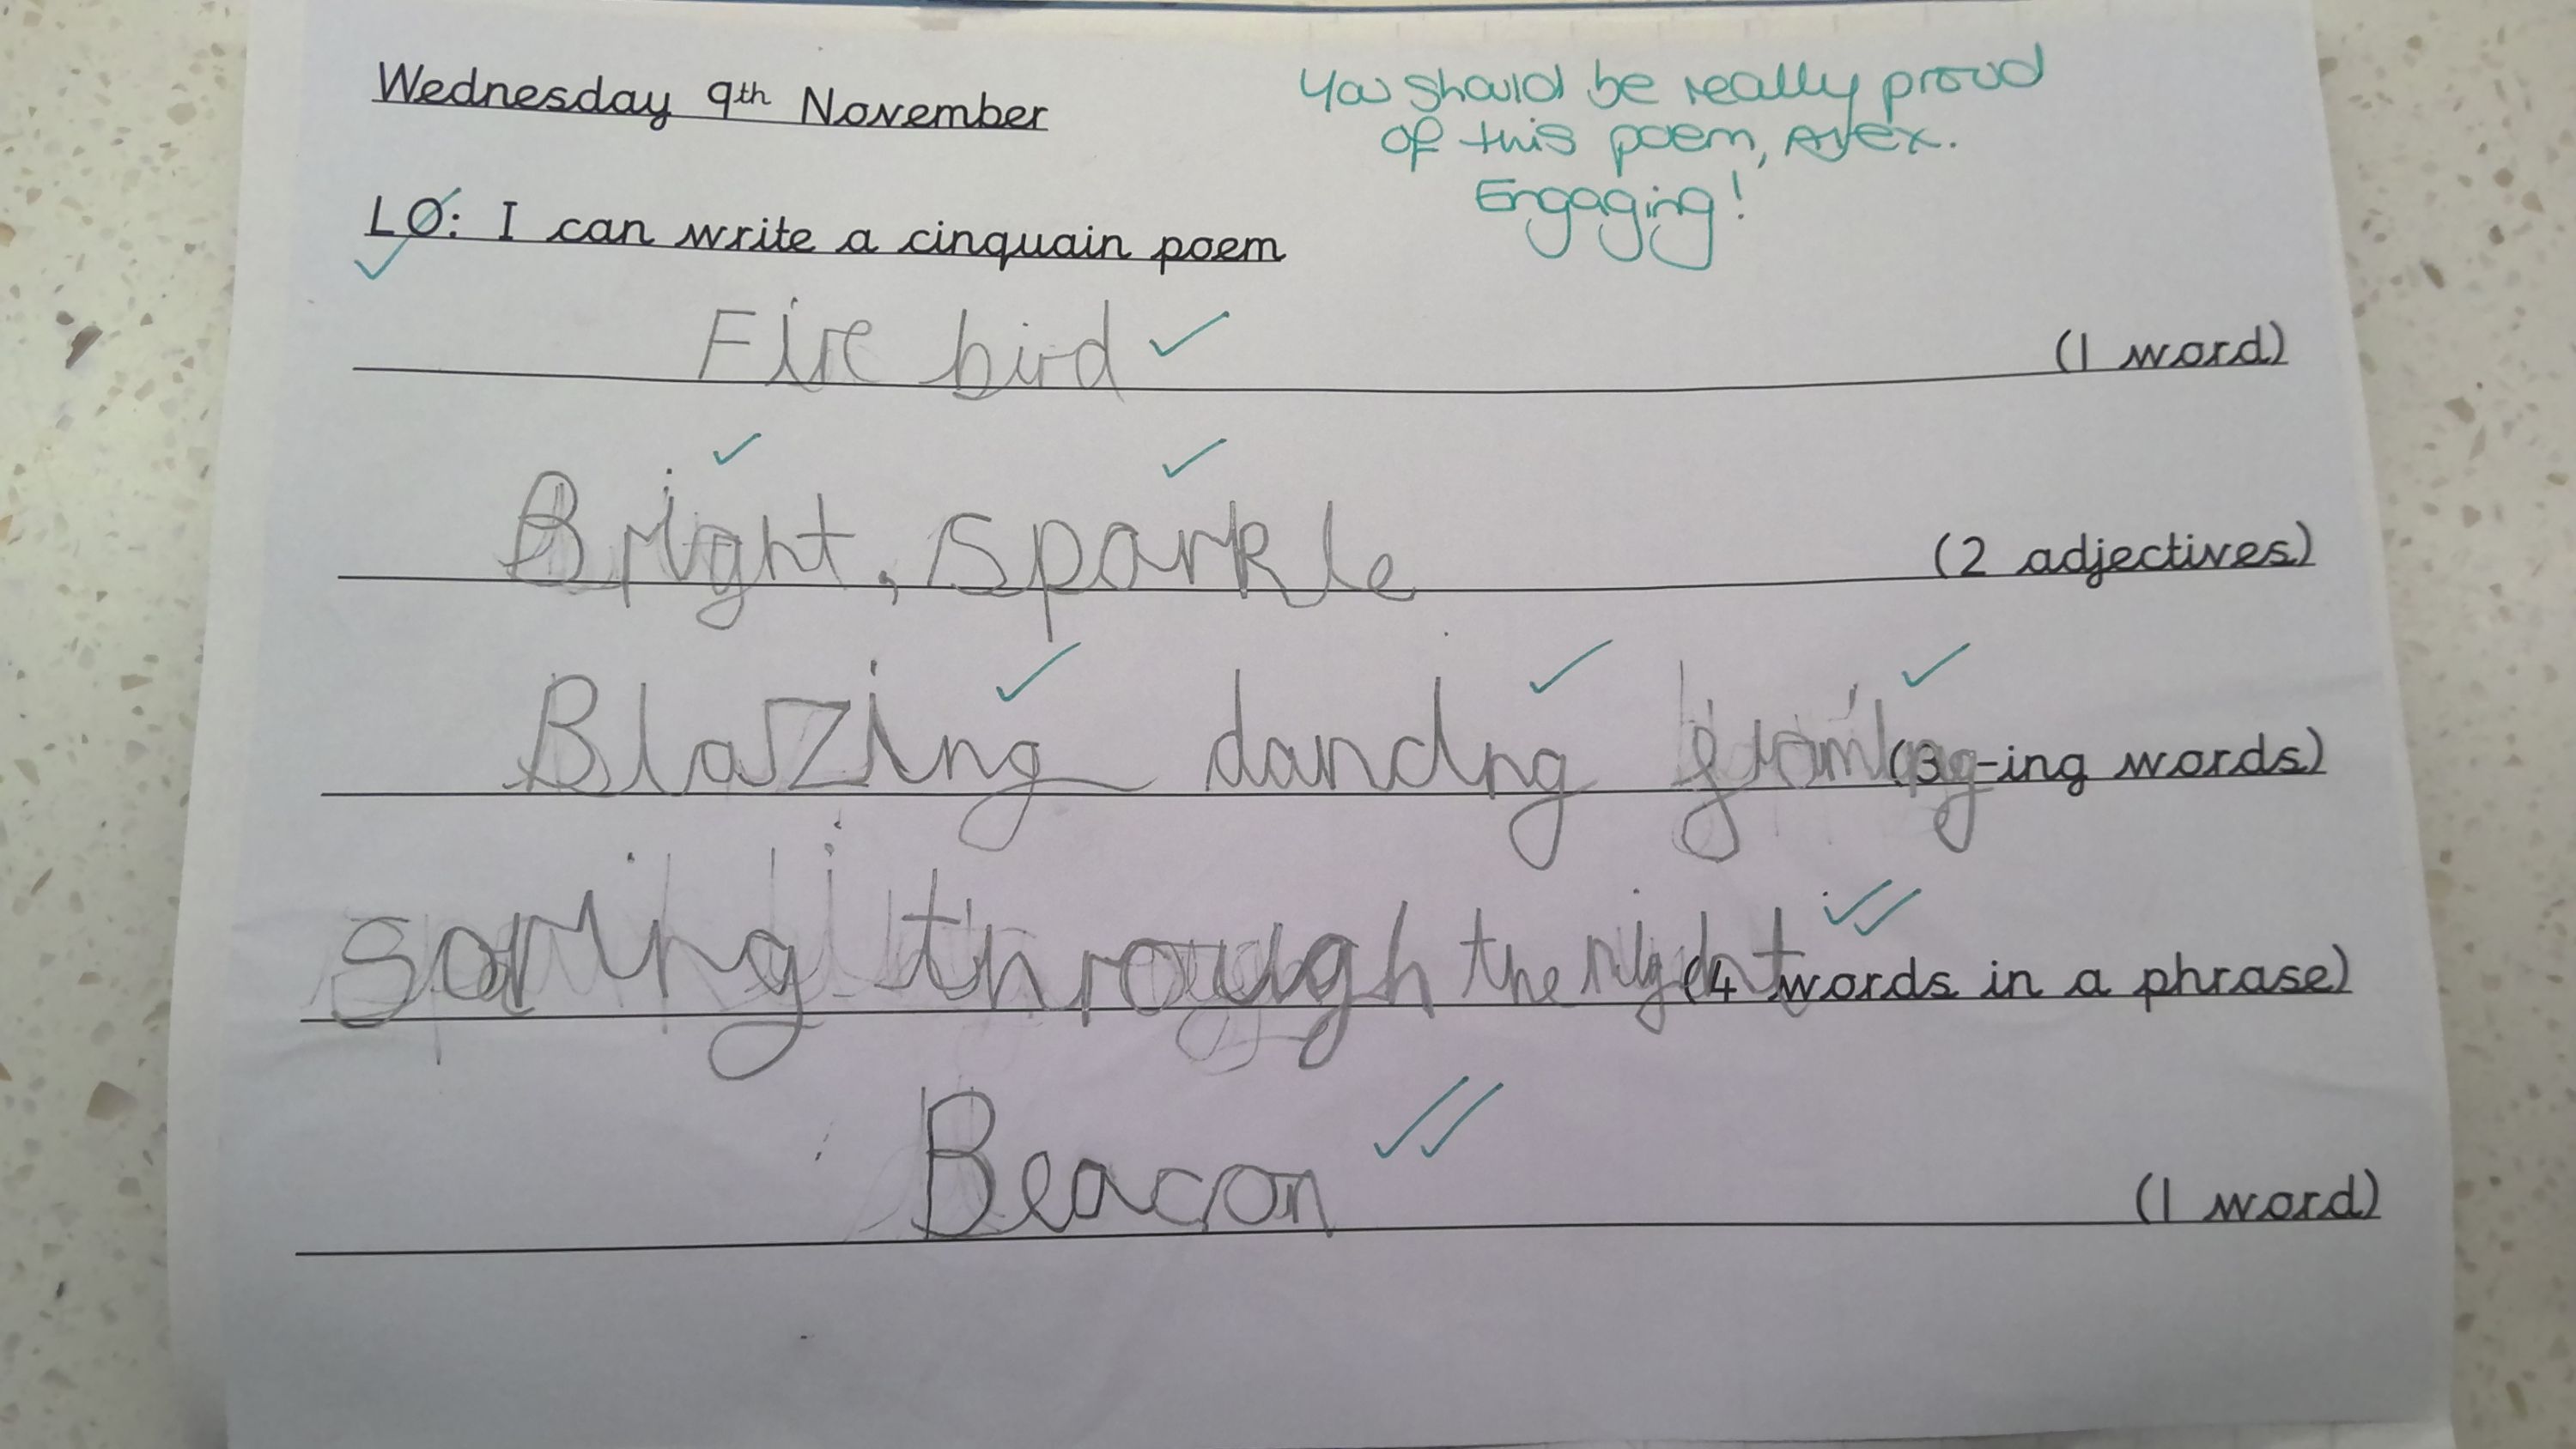 Wednesday 9th November
You should be really proud
of this poem, Alex.
Engaging!
LO: I can write a cinquain poem
Fire bird (1 word)
Bright, sparkle (2 adjectives)
Blazing dancing (3 -ing words)
soring through the night (4 words in a phrase)
Beacon (1 word)